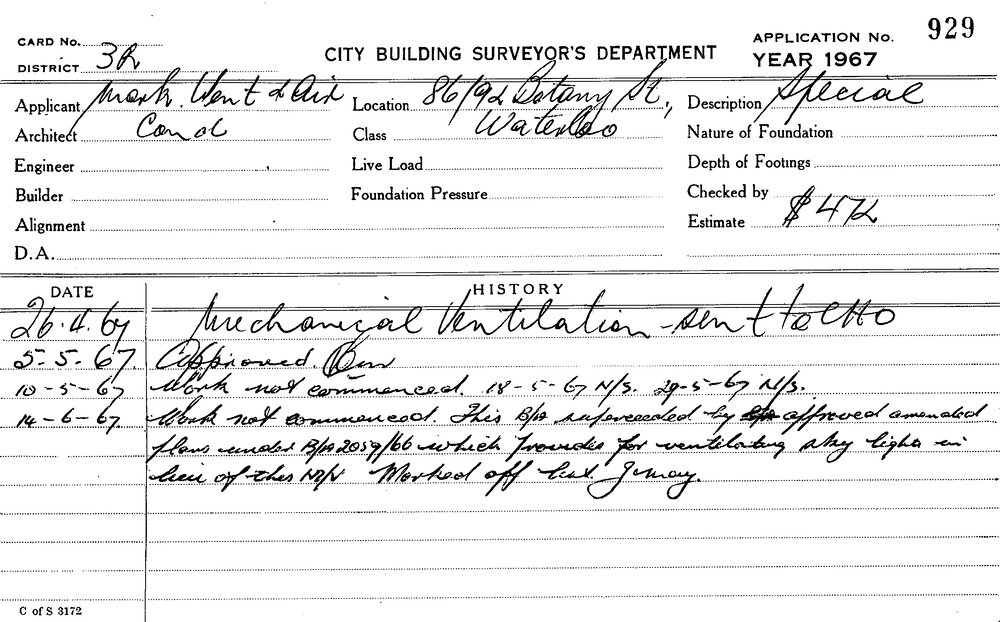 929
CARD No.
APPLICATION No.
DISTRICT 3R
CITY BUILDING SURVEYOR'S DEPARTMENT
YEAR 1967
Applicant Mark. Vent & Air
Location 86/92 Botany St,
Description Special
Architect Cond
Class Waterloo
Nature of Foundation
Engineer
Live Load
Depth of Footings
Builder
Foundation Pressure
Checked by
Alignment
Estimate $472
D.A.
DATE
HISTORY
26.4.67 Mechanical Ventilation - sent to CHO
5-5-67. Approved.
10-5-67 Work not commenced. 18-5-67 N/S. 29-5-67 N/S.
14-6-67 Work not commenced. This B/A superceeded by approved amended
plans under B/A 2059/66 which provides for ventilating sky lights in
lieu of this M/V Marked off list.
C of S 3172